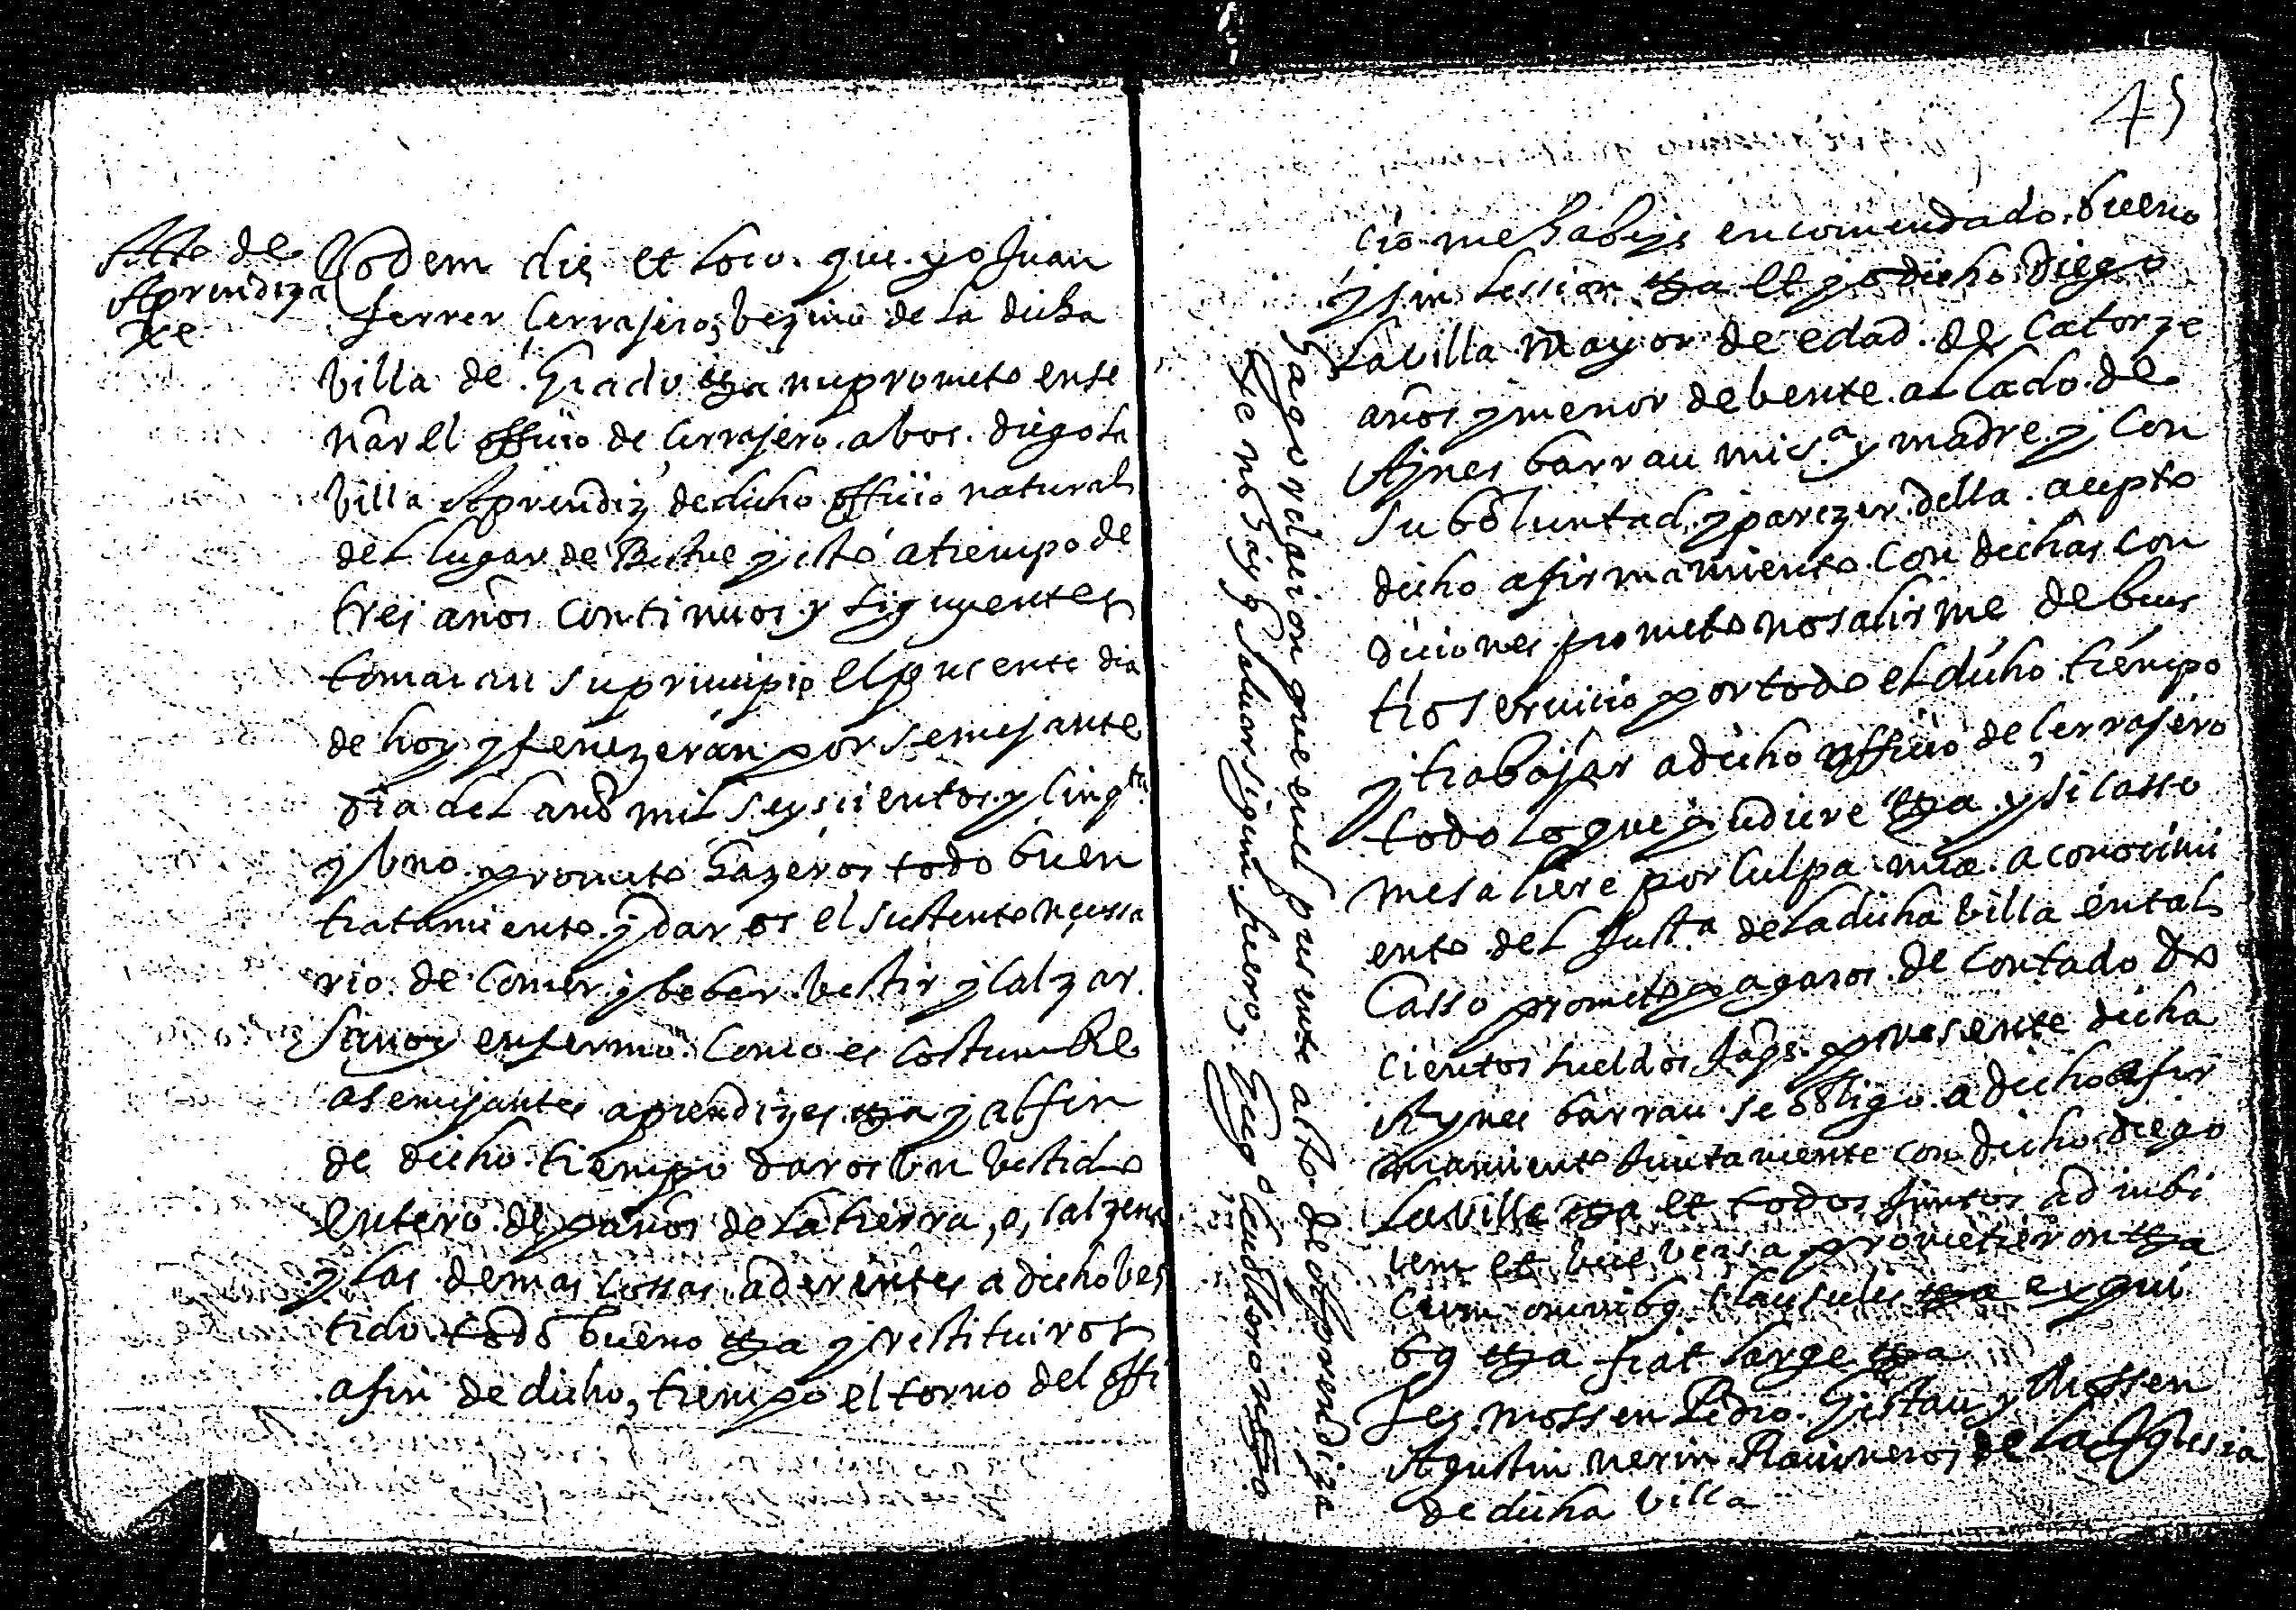 Acto de
Aprendiza
xe
Eodem die et loco. que yo Juan
ferrer Cerrajero, bezino de la dicha
billa de Grado etza me prometo ense
nar el officio de Cerrajero. a bos. diego la
billa Aprendiz de dicho officio natural
del lugar de y esto a tiempo de
tres años continuos y siguyentes
tomaran su principio el presente dia
de hoy y fenezeran por semejante
dia del año mil seyscientos y cinqta
y uno. prometo hazeros todo buen
tratamiento. y daros el sustento necessa
rio de comer y beber. bestir y calzar.
sano y enfermo. como es costumbre
a semejantes aprendizes etza y al fin
de dicho tiempo daros un bestido
entero de paños de la tierra, o, calzones
y las demas cossas aderentes a dicho bes
tido. todo bueno etza y restituiros
a fin de dicho, tiempo el torno del offi
45
cio me habeys encomendado. bueno
y sin lession etza et yo dicho diego
Lavilla mayor de edad de catorze
años y menor de bente. al lado de
Aynes barrau mi sª y madre. y con
su boluntad. y parezer della. acepto
dicho afirmamiento con dichas con
diciones prometo no salirme de bues
tro servicio por todo el dicho tiempo
y trabajar a dicho officio de Cerrajero
todo lo que pudiere etza y si casso
me saliere por culpa mia. a conocimi
ento del Justª de la dicha billa en tal
Casso prometo pagaros de contado do
cientos sueldos Jaqs. presente dicha
Aynes barrau se obligo. a dicho afir
mamiento Juntamente con dicho diego
Lavilla etza et todos Juntos ad inbi
cem et bice bersa prometieron etza
cum omnibq clausulis etza ex qui
bq etza fiat large etza
Tes mossen Pedro Gistau y Mossen
Agustin nerin Racioneros de la Yglesia
de dicha billa
hago relacion que en el presente acto de aprendiza
xe no hay q salvar segun fuero,